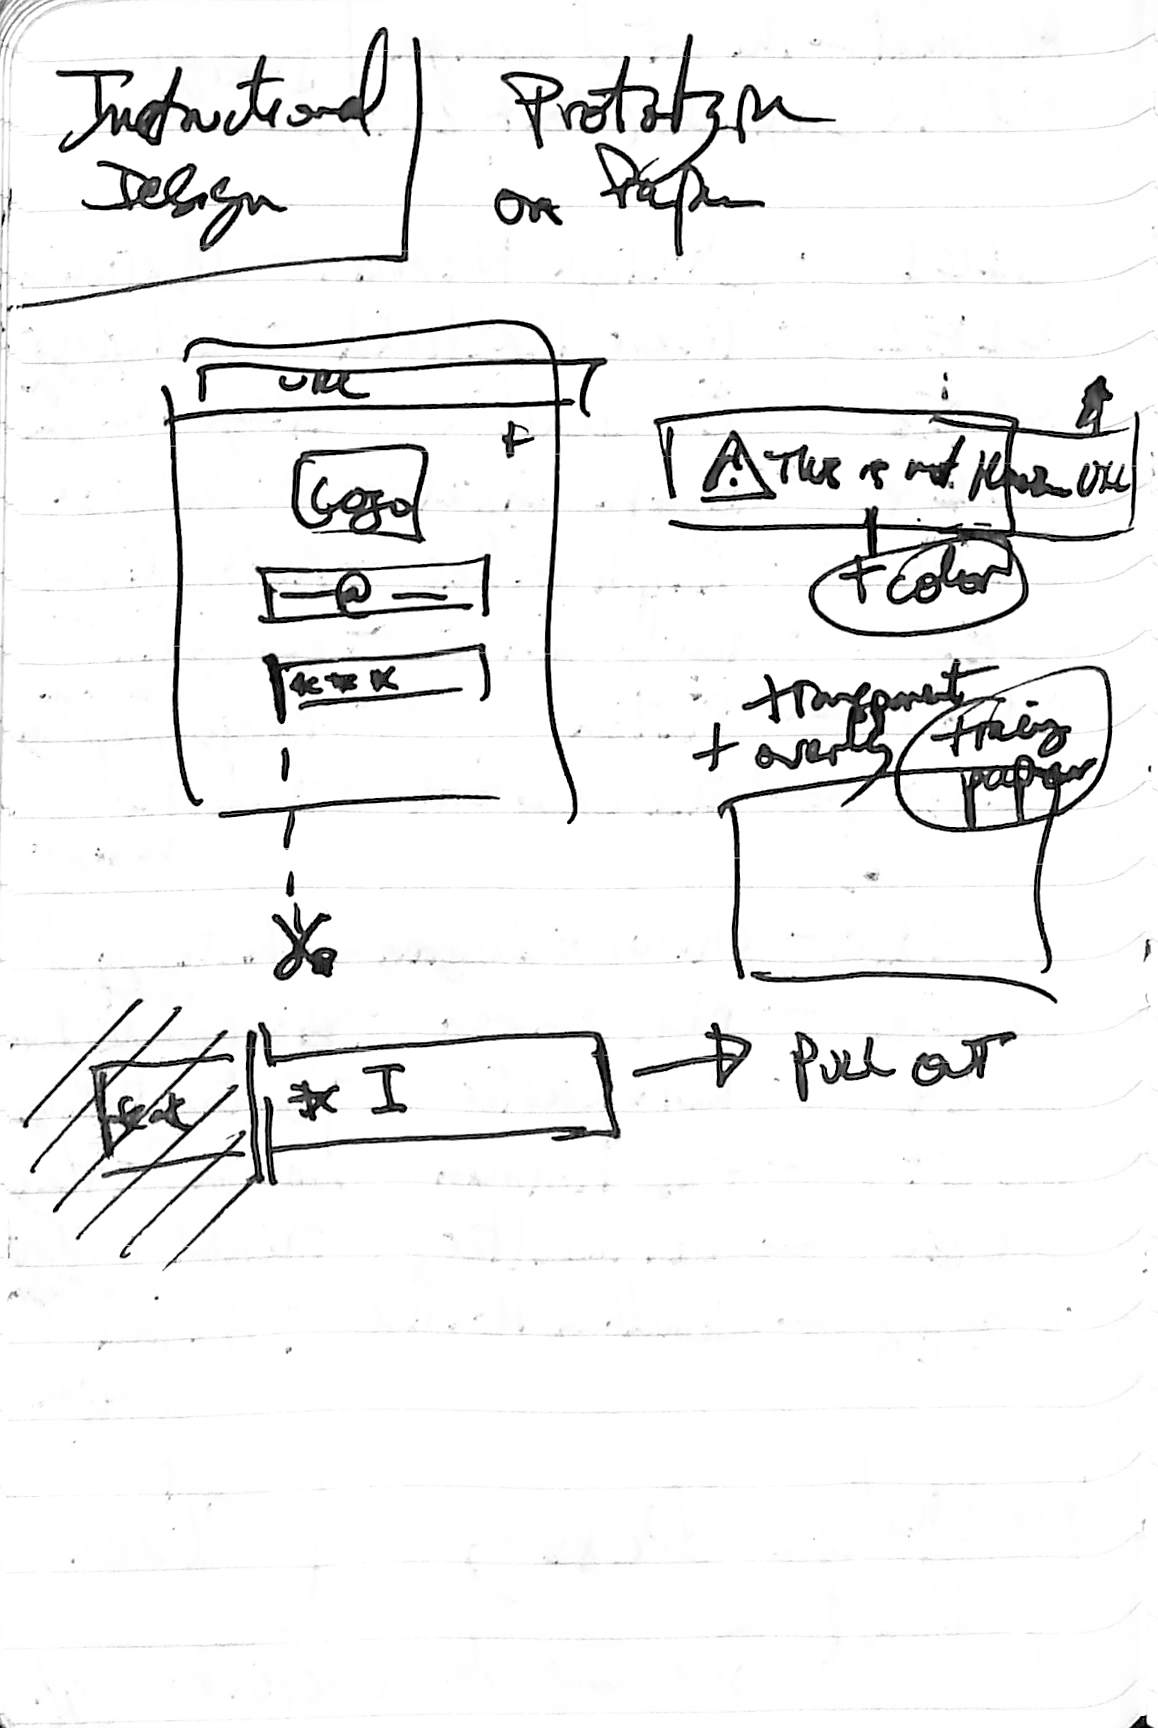 Instructional
Design
Prototype
on Paper
URL
+
Logo
— @ —
***
This is not URL
+ color
+ transparent
+ overlay
+ tracing
paper
* I
Pull out